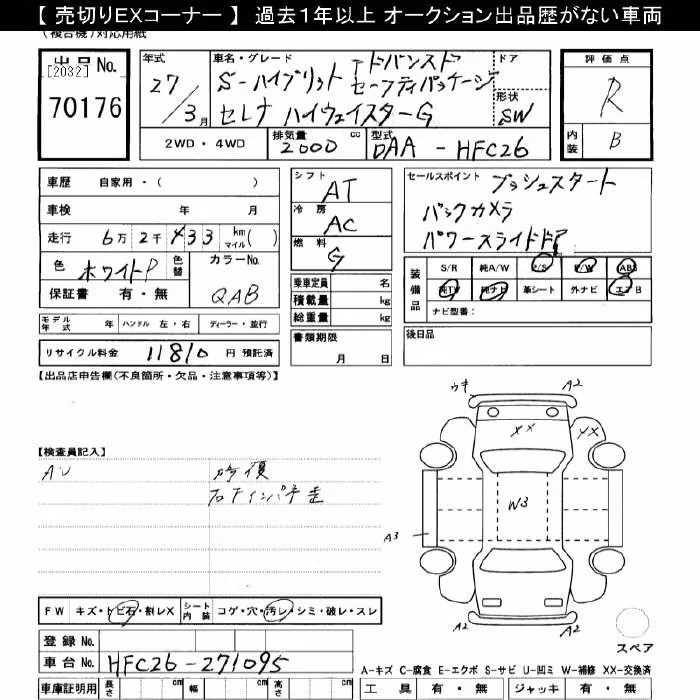 【 売切りEXコーナー 】 過去１年以上 オークション出品歴がない車両
(複合機)対応用紙
出品No.
[2032]
70176
年式
27/3月
車名・グレード
S-ハイブリット アドバンスド セーフティパッケージ
セレナ ハイウェイスターG
ドア
形状
SW
評価点
R
内装
B
2WD・4WD
排気量
2000 cc
型式
DAA - HFC26
車歴 自家用・( )
車検 年 月
走行 6万 2千 433 km マイル ( )
色 ホワイトP 色替
カラーNo. QAB
保証書 有・無
モデル年式 年 ハンドル 左・右 ディーラー・並行
リサイクル料金 11810 円 預託済
シフト AT
冷房 AC
燃料 G
乗車定員 名
積載量 kg
総重量 kg
書類期限
月 日
セールスポイント プッシュスタート
バックカメラ
パワースライドドア
装備品
S/R 純A/W P/S P/W ABS
純TV 純ナビ 革シート 外ナビ エアB
ナビ型番:
後日品
【出品店申告欄(不良箇所・欠品・注意事項等)】
【検査員記入】
AU 修復
右Fインパネ歪
ウキ A2
A2
XX XX
W3
A3
A2
A2
スペア
FW キズ・トビ石・割レX シート内装 コゲ・穴・汚レ・シミ・破レ・スレ
登録No.
車台No. HFC26-271095
車庫証明用 長さ cm 幅 cm 高さ cm
A-キズ C-腐食 E-エクボ S-サビ U-凹ミ W-補修 XX-交換済
工具 有・無 ジャッキ 有・無